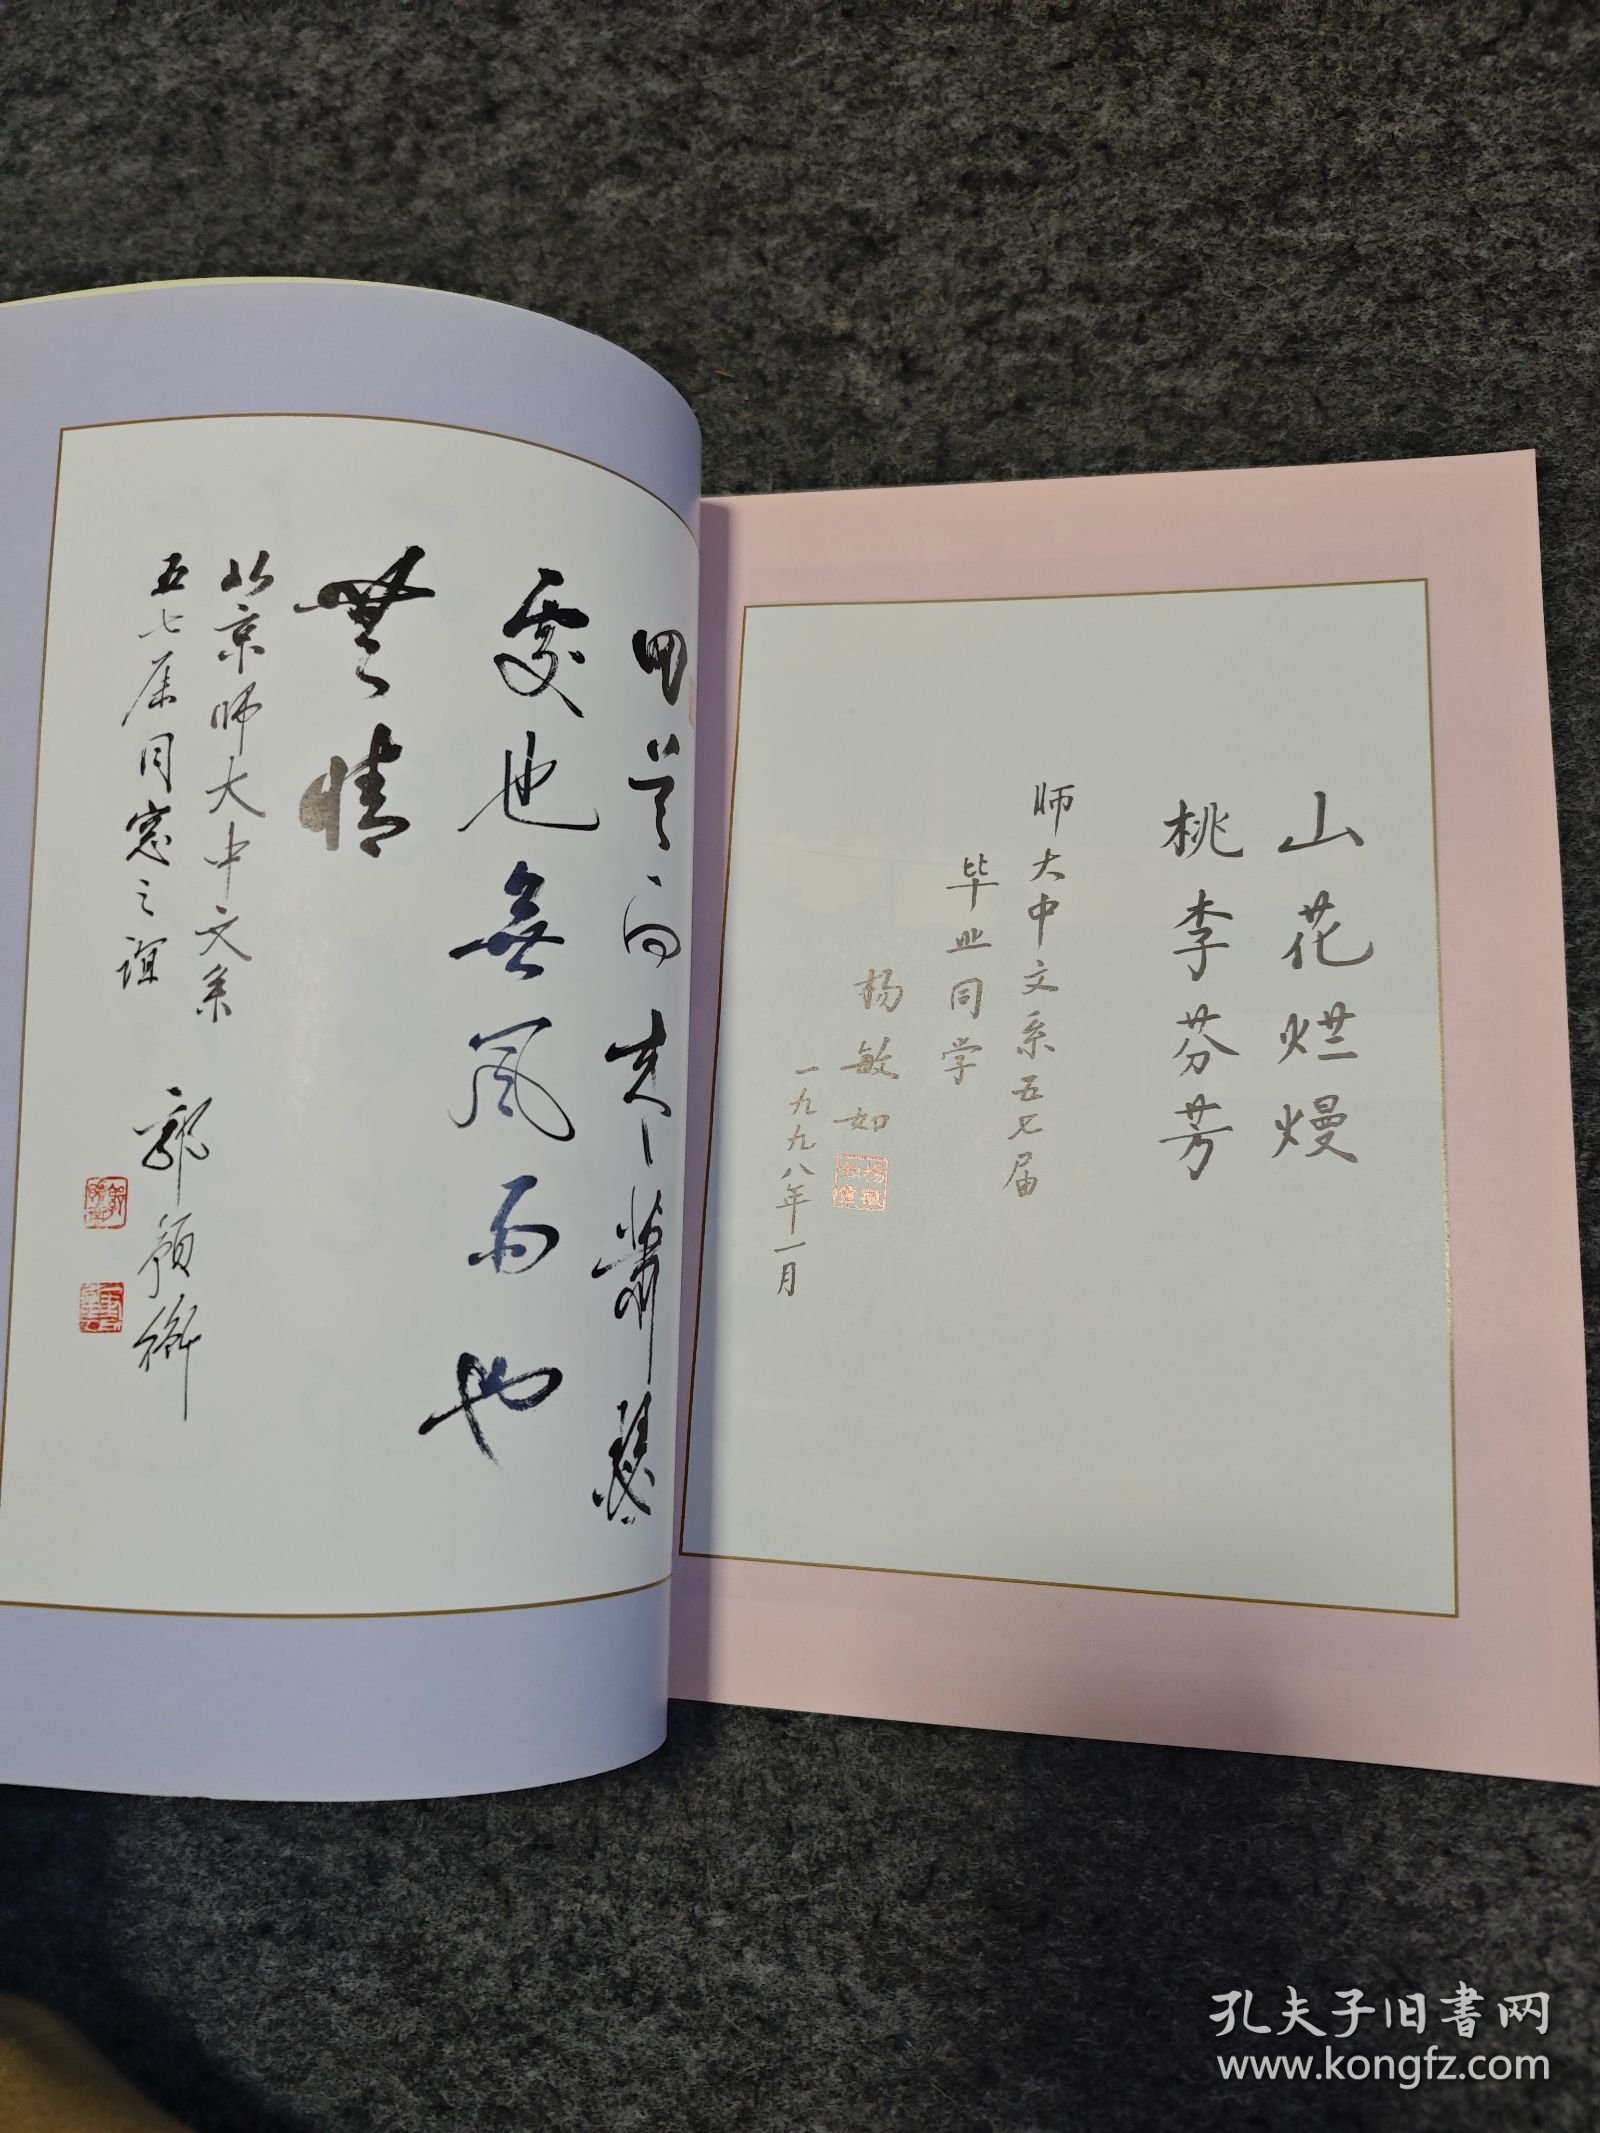 回首向来蕭瑟
處也無風雨也
無情
北京师大中文系
五七届同窓之谊
郭预衡
山花烂熳
桃李芬芳
师大中文系五七届
毕业同学
杨敏如
一九九八年一月
孔夫子旧书网
www.kongfz.com